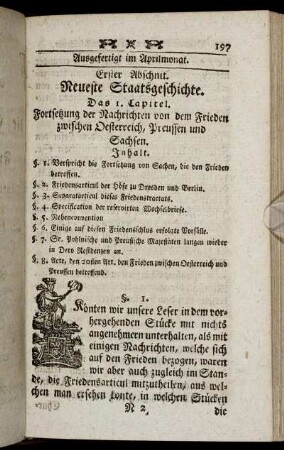 197
Ausgefertigt im Aprilmonat.
Erster Abschnit.
Neueste Staatsgeschichte.
Das 1. Capitel.
Fortsetzung der Nachrichten von dem Frieden
zwischen Oesterreich, Preussen und
Sachsen.
Inhalt.
§. 1. Verspricht die Fortsetzung von Sachen, die den Frieden
betreffen.
§. 2. Friedensarticul der Höfe zu Dresden und Berlin.
§. 3. Separatarticul dieses Friedenstractats.
§. 4. Specification der reservirten Wechselbriefe.
§. 5. Nebenconvention
§. 6. Einige auf diesen Friedenschlus erfolgte Vorfälle.
§. 7. Se. Pohlnische und Preußische Majestäten langen wieder
in Dero Residenzen an.
§. 8. Acte, den 20sten Art. des Frieden zwischen Oesterreich und
Preussen betreffend.
§. 1.
Könten wir unsere Leser in dem vor-
hergehenden Stücke mit nichts
angenehmern unterhalten, als mit
einigen Nachrichten, welche sich
auf den Frieden bezogen, waren
wir aber auch zugleich im Stan-
de, die Friedensarticul mitzutheilen, aus wel-
chen man ersehen konte, in welchen Stücken
N 2
die